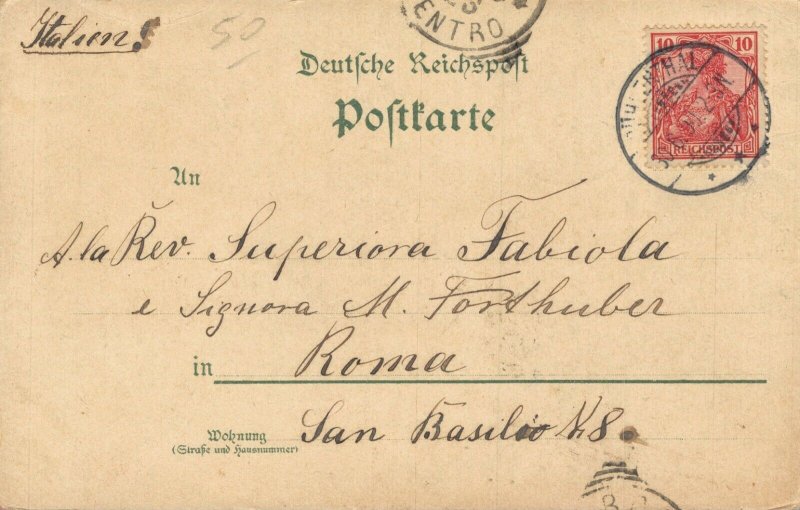 Italien!
50
ENTRO
Deutsche Reichspost
Postkarte
10 10
REICHSPOST
An
A. la Rev. Superiora Fabiola
e Signora M. Forthuber
in Roma
Wohnung
(Straße und Hausnummer)
San Basilio N. 8.